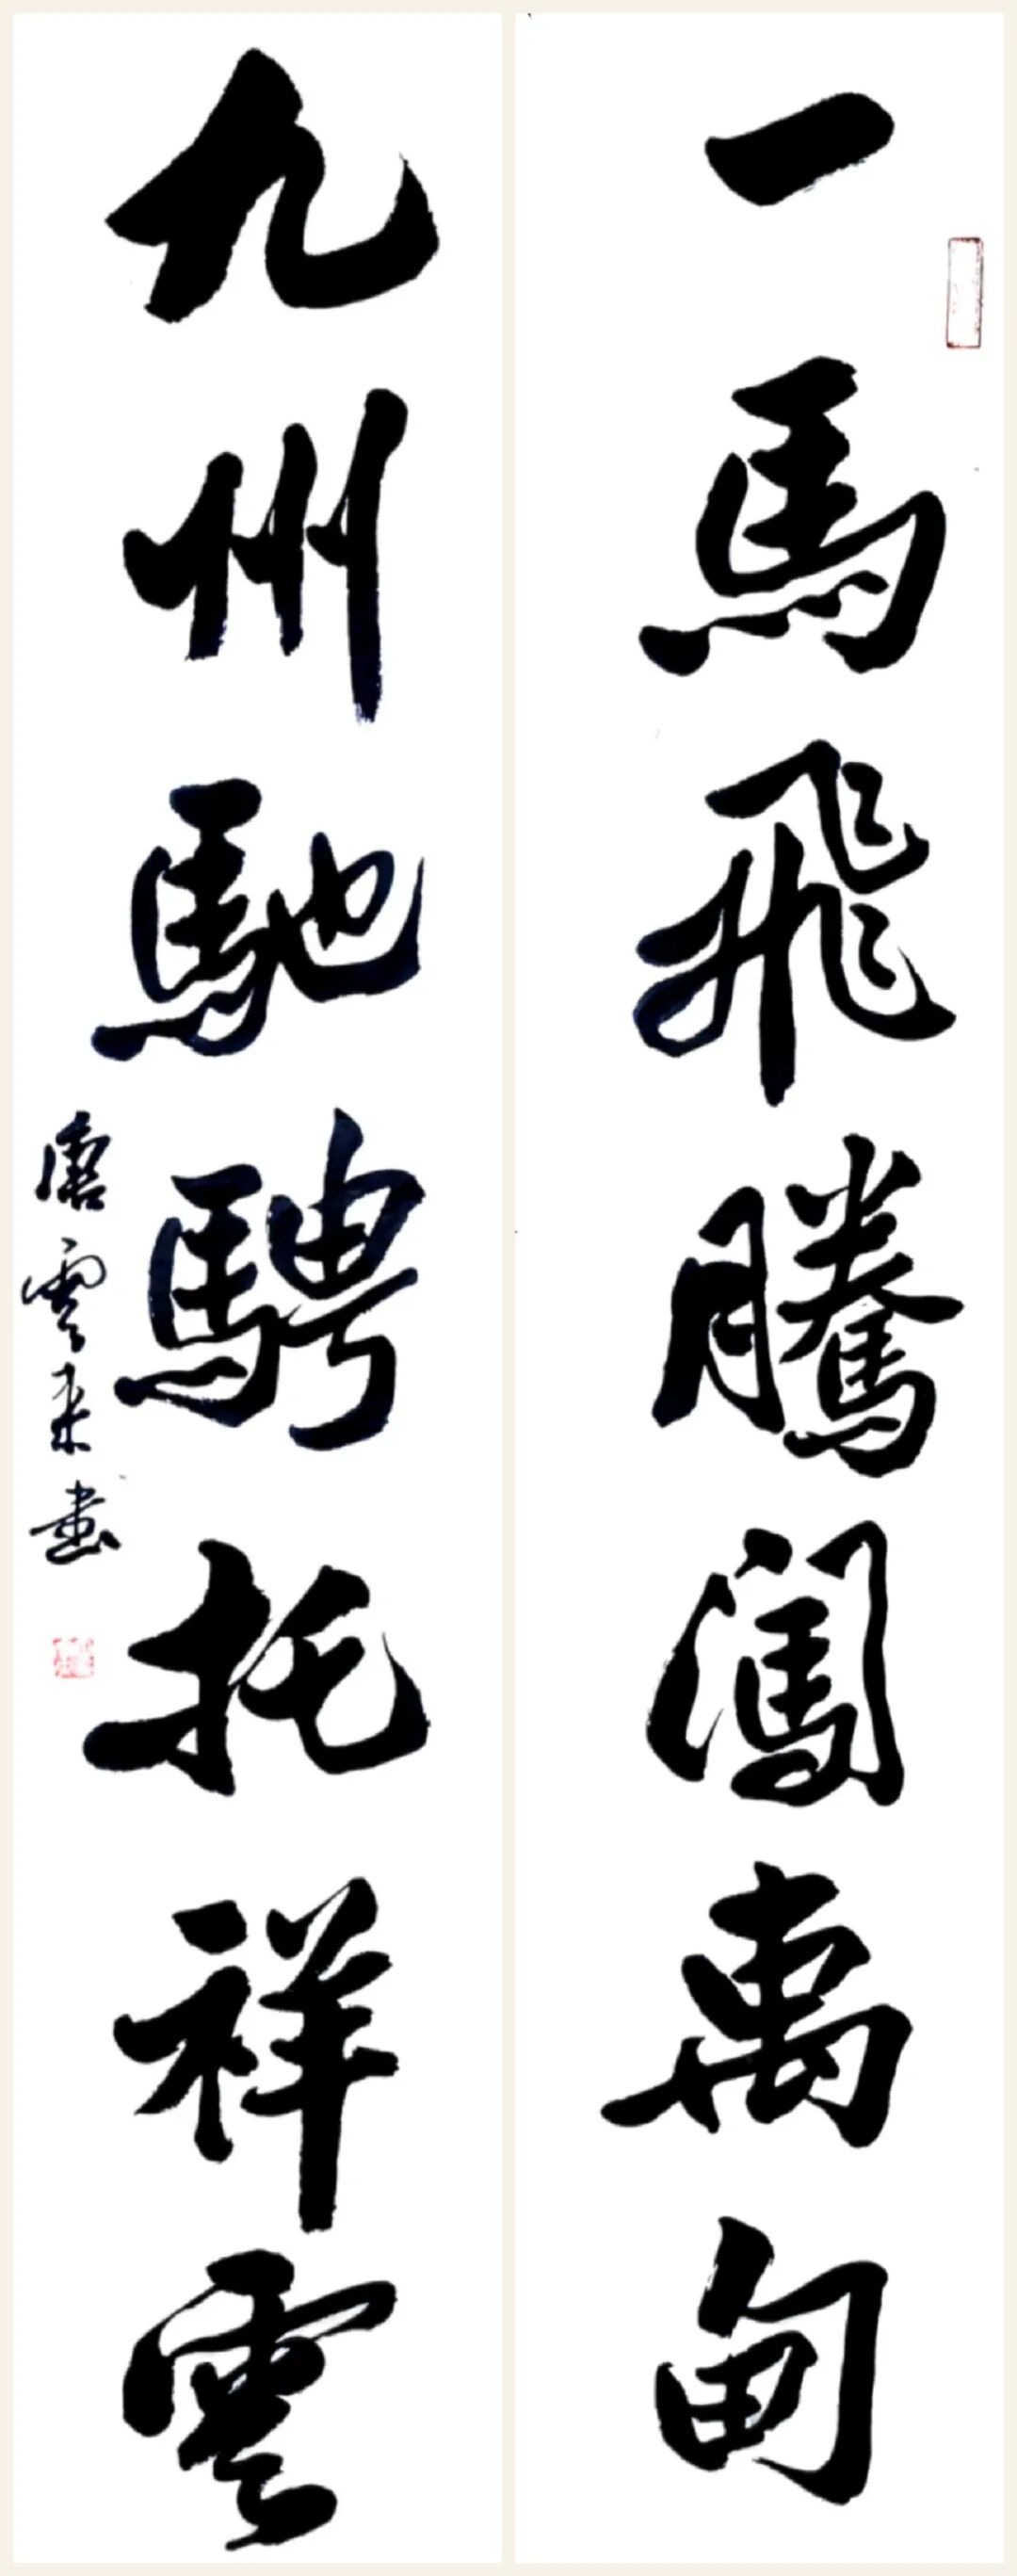 一馬飛騰闖萬甸
九州馳騁托祥雲
唐雲来书